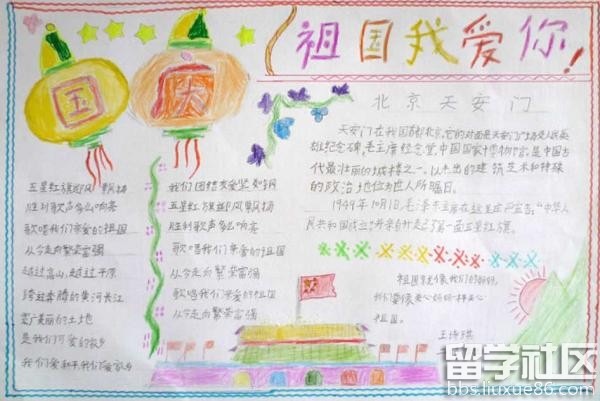 祖国我爱你!
国庆
北京天安门
天安门在我国首都北京,它的对面是天安门广场及人民英
雄纪念碑、毛主席纪念堂、中国国家博物馆,是中国古
代最壮丽的城楼之一,以杰出的建筑艺术和特殊
的政治地位为世人所瞩目。
1949年10月1日,毛泽东主席在这里庄严宣告:"中华人
民共和国成立"并亲自升起了第一面五星红旗。
五星红旗迎风飘扬
胜利歌声多么响亮
歌唱我们亲爱的祖国
从今走向繁荣富强
越过高山,越过平原
跨过奔腾的黄河长江
宽广美丽的土地
是我们可爱的家乡
我们爱和平,我们爱家乡
我们团结友爱坚如钢
五星红旗迎风飘扬
胜利歌声多么响亮
歌唱我们亲爱的祖国
从今走向繁荣富强
歌唱我们亲爱的祖国
从今走向繁荣富强
祖国就像我们的妈妈,
我们要像关心妈妈一样关心
祖国。
留学社区
bbs.liuxue86.com